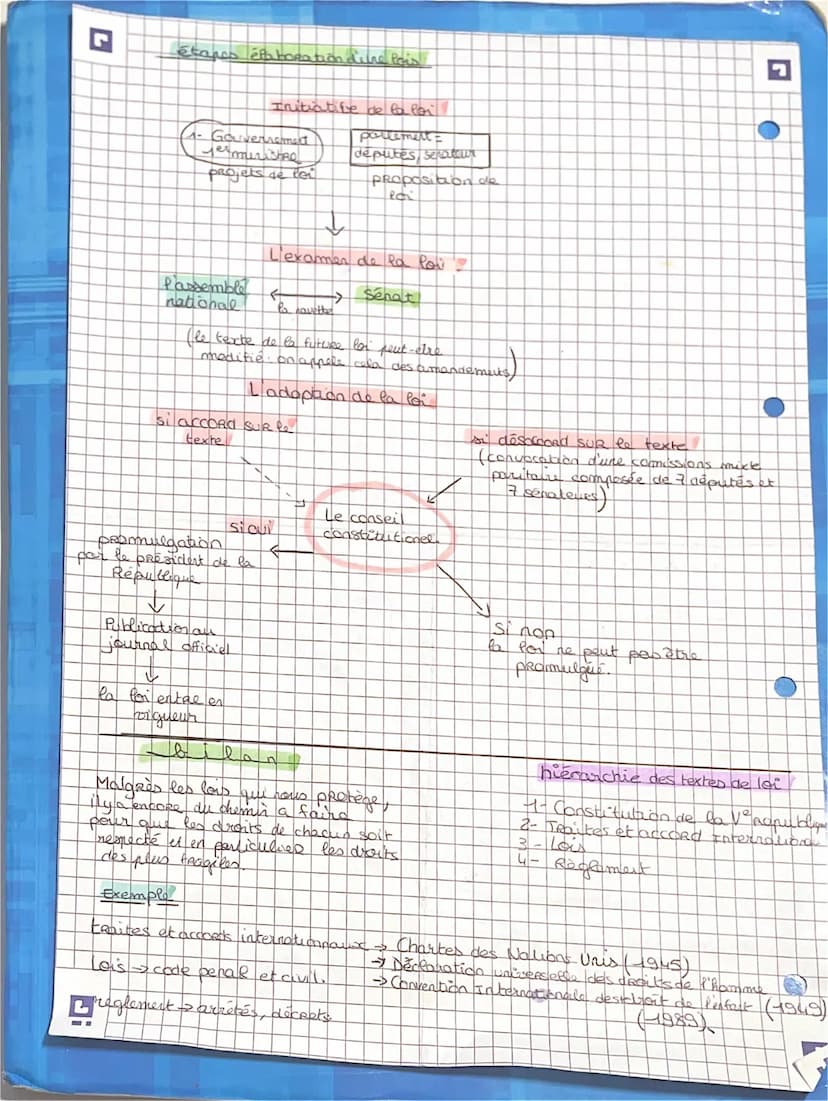 étapes élaboration d'une lois
Initiative de la loi
1- Gouvernement
1er ministre
projets de loi
parlement =
députés, sénateur
proposition de
loi
L'examen de la loi
l'assemblé
national
la navette
Sénat
(le texte de la future loi peut-être
modifié : on appele cela des amandements)
L'adoption de la loi
si accord sur le
texte
si désaccord sur le texte
(convocation d'une comissions mixte
paritaire composée de 7 députés et
7 sénateurs)
Le conseil
constitutionel
si oui
promulgation
par le président de la
République
Publication au
journal officiel
la loi entre en
vigueur
si non
la loi ne peut pas être
promulgué.
bilan
Malgrès les lois qui nous protège,
il y a encore du chemin a faire
pour que les droits de chacun soit
respecté et en particulier les droits
des plus fragiles.
hiérarchie des textes de loi
1- Constitution de la Ve république
2- Traites et accord International
3- Lois
4- Règlement
Exemple
traites et accords internationnaux → Chartes des Nations Unis (1945)
→ Déclaration universelle des droits de l'Homme (1949)
→ Convention Internationale des droit de l'enfant (1989)
Lois → code penal et civil.
règlement → arrêtés, décrets